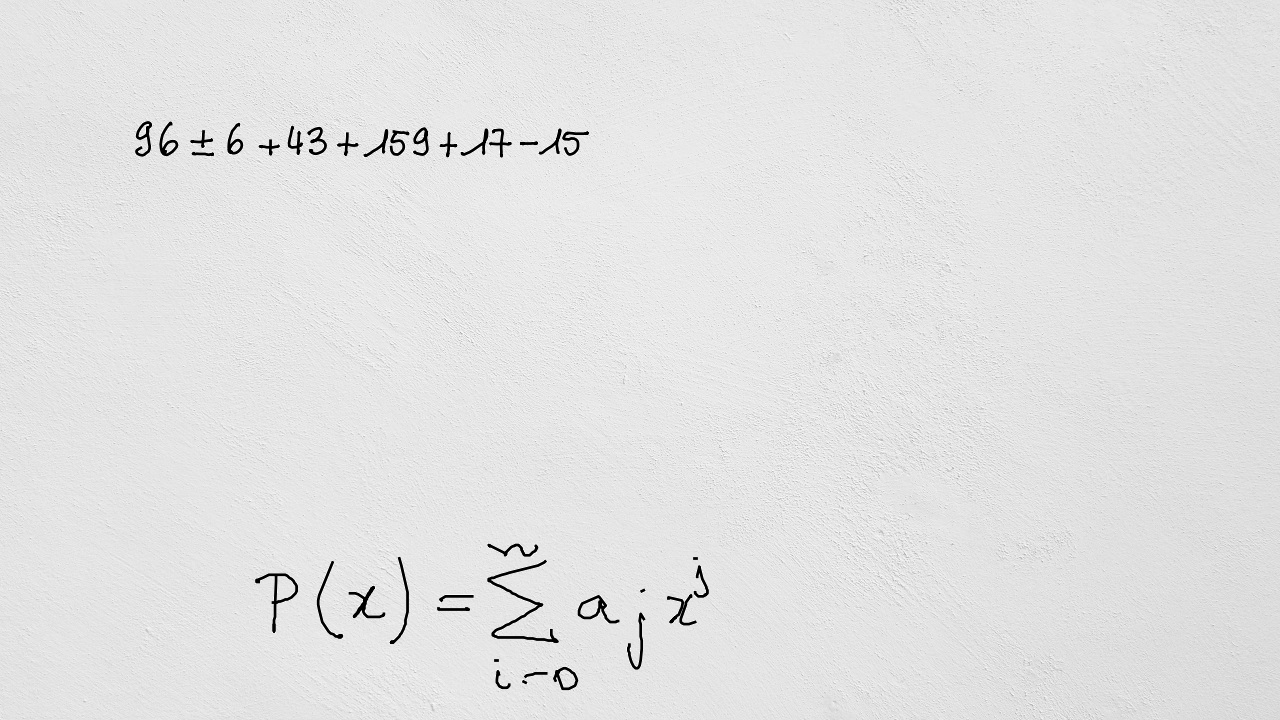 96 ± 6 + 43 + 159 + 17 - 15
P(x) = \sum_{i=0}^{n} a_j x^j